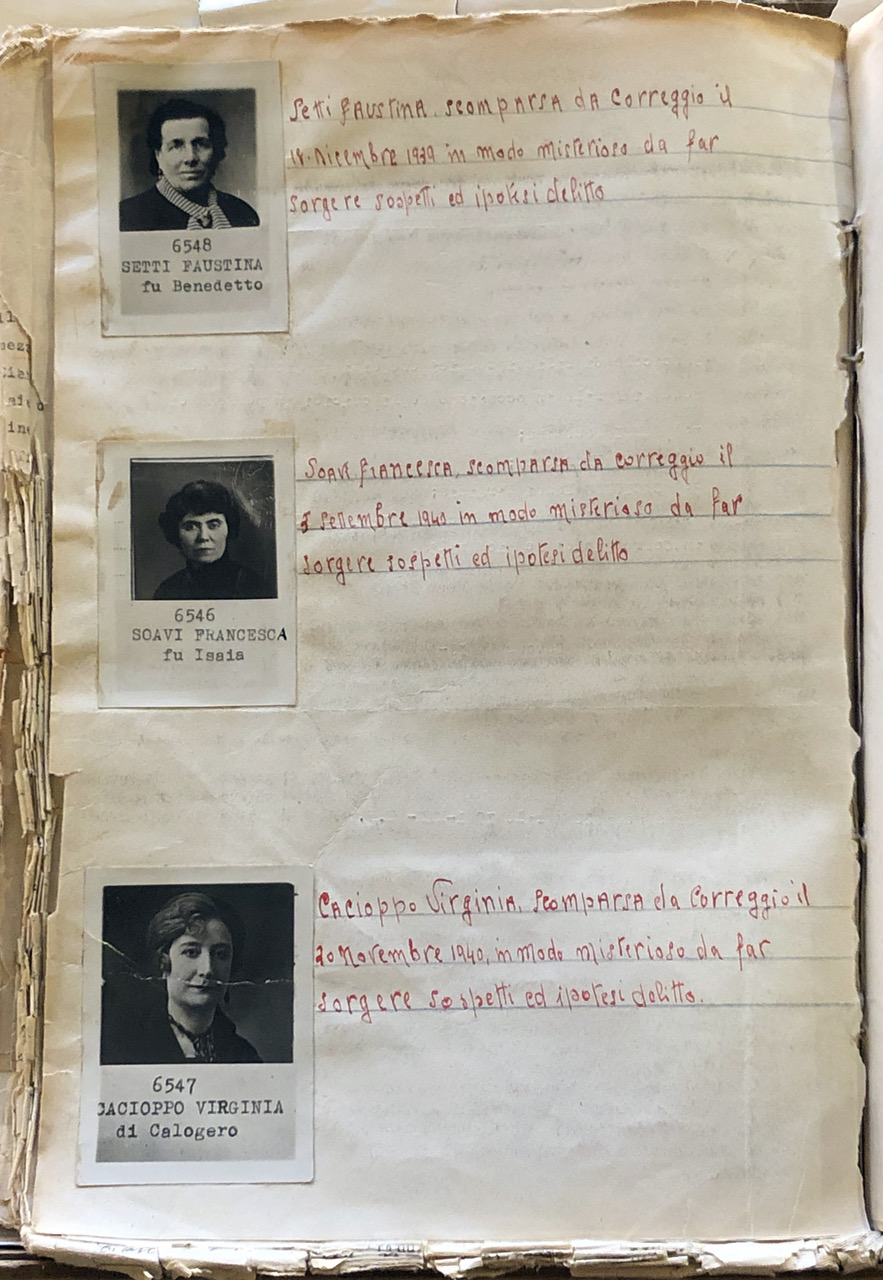 Setti FAUSTINA, scomparsa da Correggio il
Dicembre 1939 in modo misterioso da far
sorgere sospetti ed ipotesi delitto
6548
SETTI FAUSTINA
fu Benedetto
SOAVI FRANCESCA, scomparsa da correggio il
settembre 1940 in modo misterioso da far
sorgere sospetti ed ipotesi delitto
6546
SOAVI FRANCESCA
fu Isaia
CACIOPPO Virginia, scomparsa da Correggio il
Novembre 1940, in modo misterioso da far
sorgere sospetti ed ipotesi delitto.
6547
CACIOPPO VIRGINIA
di Calogero